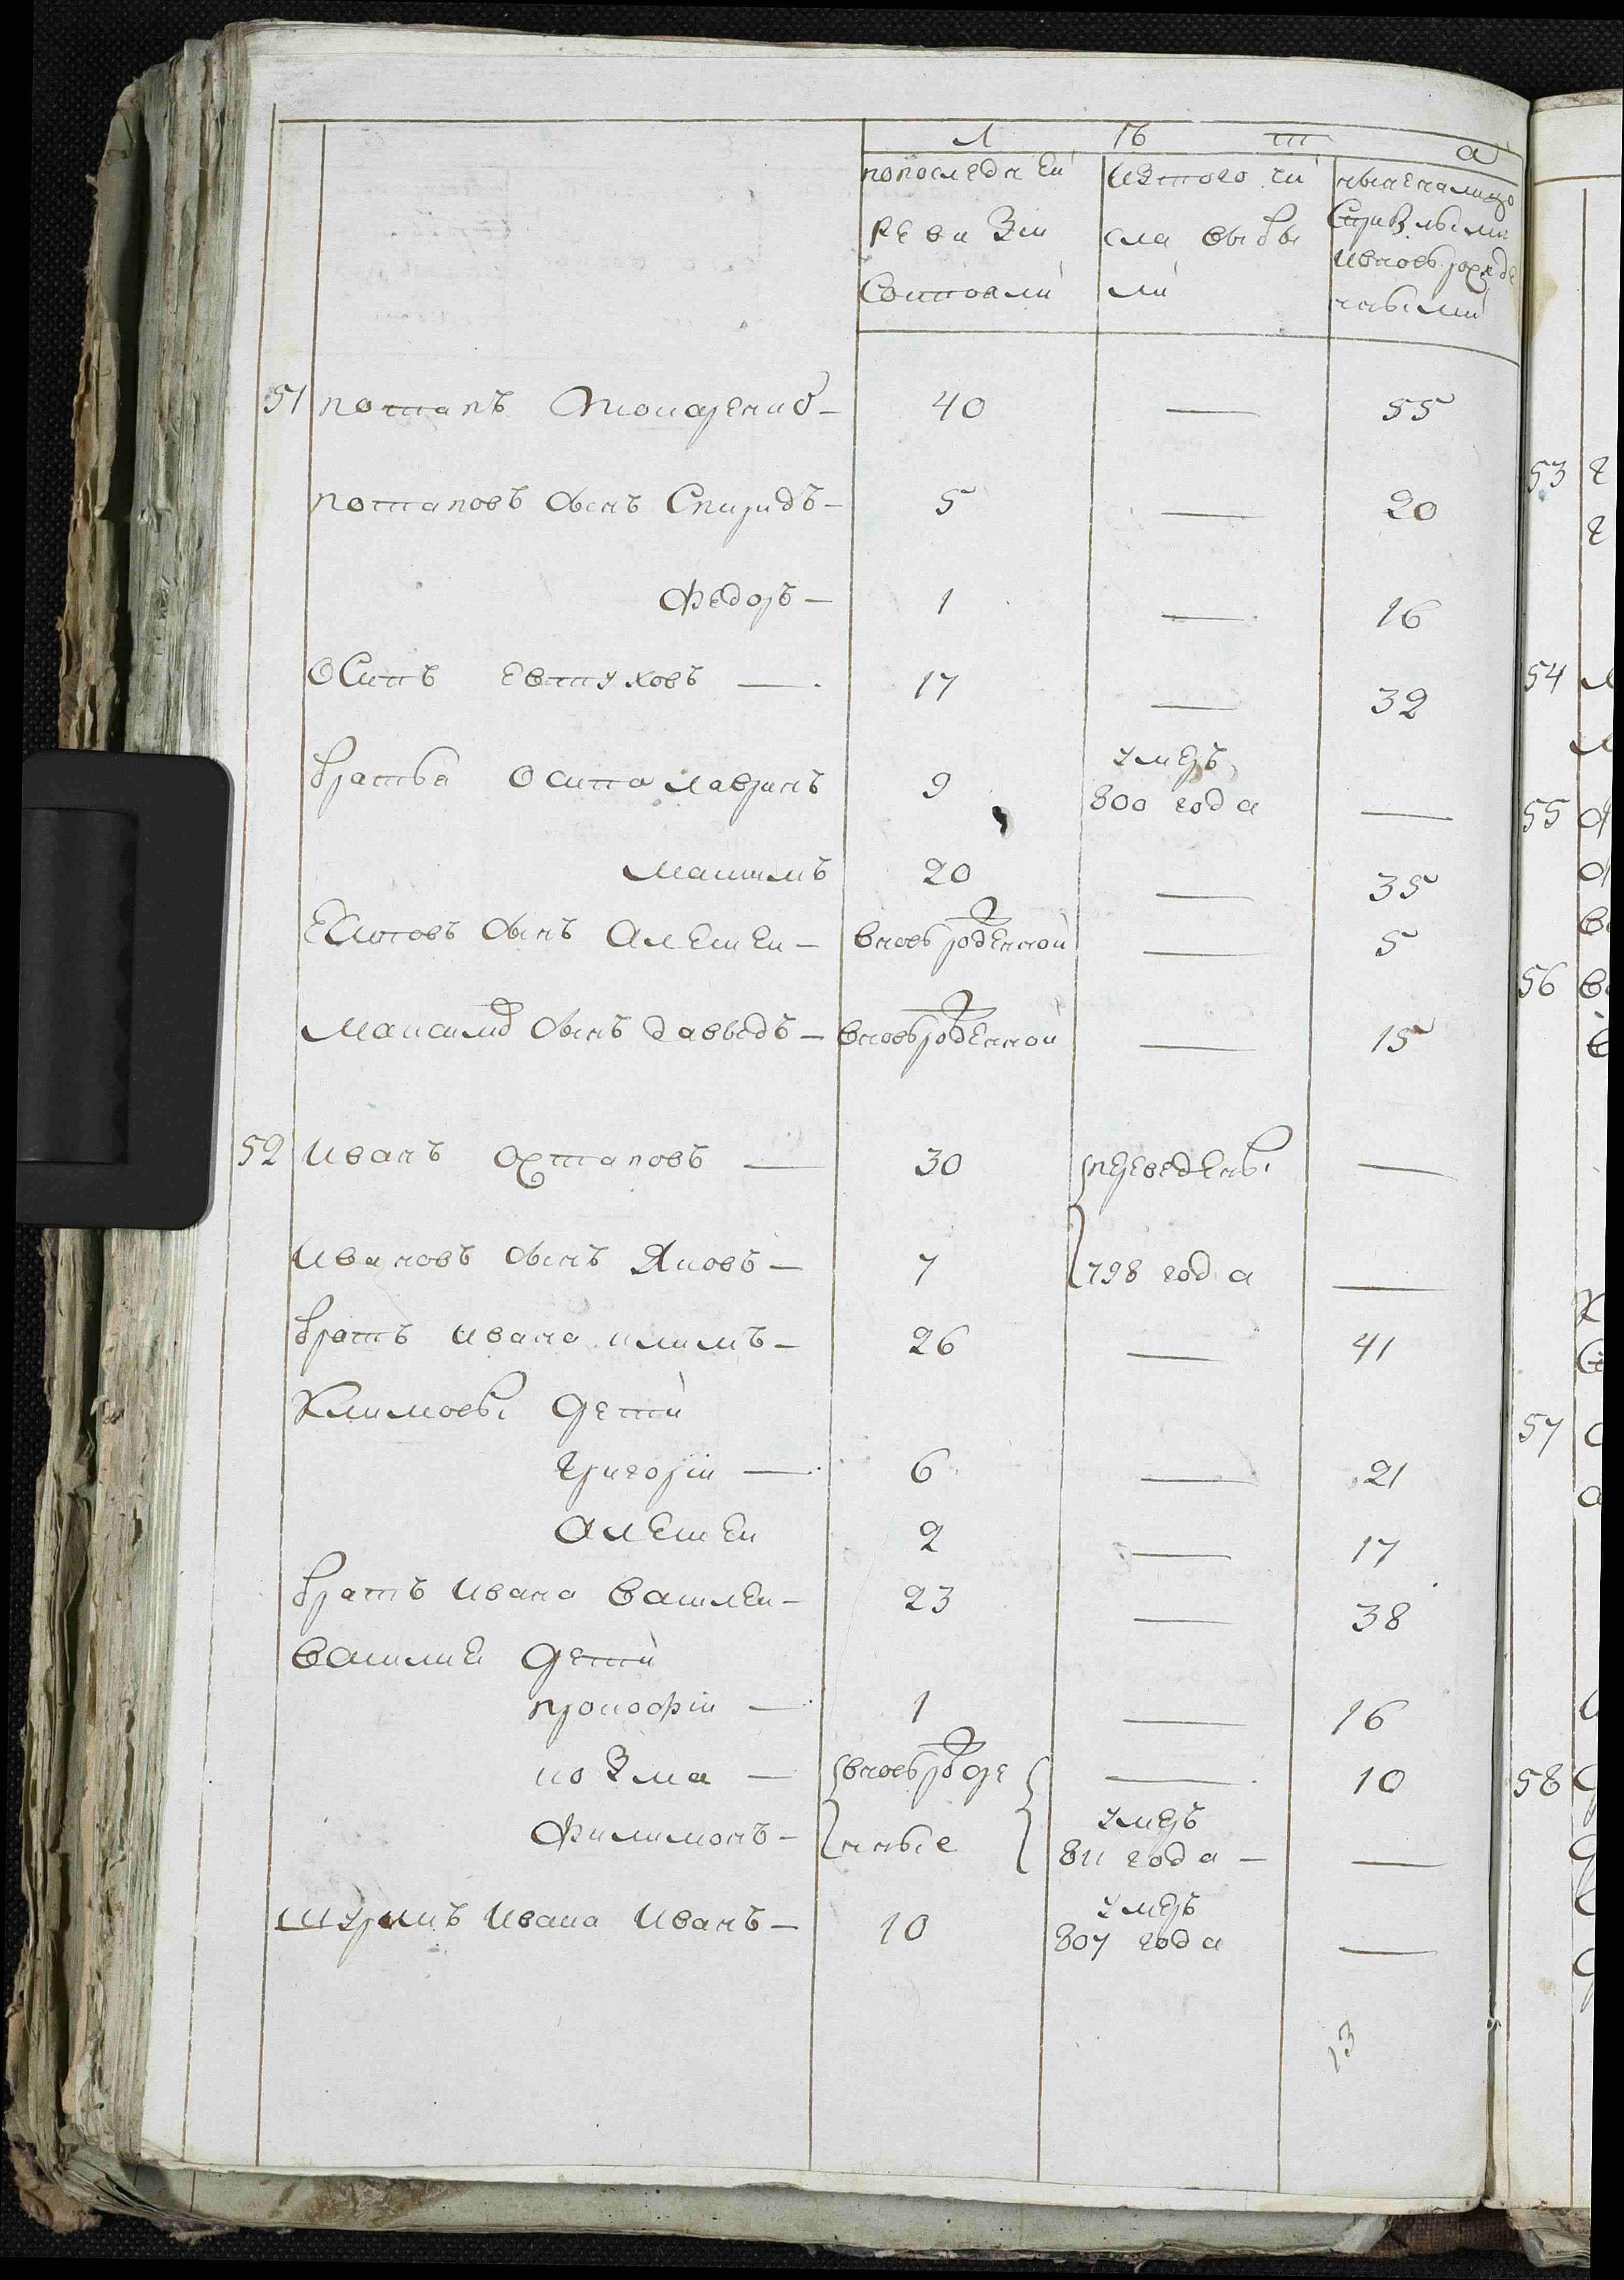 Л ѣ т а
попоследней изтого чи ныненалицо
ревизіи сла выбы Сприбылыми
Состояли ли ивновь рожде
нными
51 потапъ 40 — 55
потаповъ сынъ Спиридъ — 5 — 20
Федоръ — 1 — 16
Осипъ евтуховъ — 17 — 32
братья осипа лавринъ 9 умеръ 800 года —
Максимъ 20 — 35
Есиповъ сынъ Алексеи — вновь рожденной — 5
Максимовъ сынъ давыдъ — вновь рожденной — 15
52 Иванъ остаповъ — 30 переведены —
Ивановъ сынъ Яковъ — 7 798 года —
братъ ивана климъ — 26 — 41
Климовы дети
григоріи — 6 — 21
Алексеи 2 — 17
братъ ивана Василеи — 23 — 38
Василия дети
прокофіи — 1 — 16
козма — вновь рожде — 10
Филимонъ — нные умеръ 811 года — —
шуринъ ивана иванъ — 10 умеръ 807 года —
13
53
54
55
56
57
58